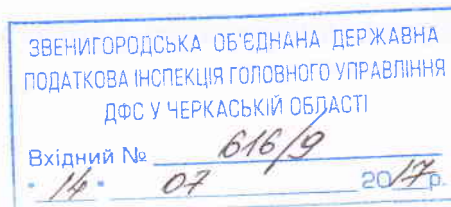 ЗВЕНИГОРОДСЬКА ОБ'ЄДНАНА ДЕРЖАВНА
ПОДАТКОВА ІНСПЕКЦІЯ ГОЛОВНОГО УПРАВЛІННЯ
ДФС У ЧЕРКАСЬКІЙ ОБЛАСТІ
Вхідний № 616/9
"14" 07 2017р.